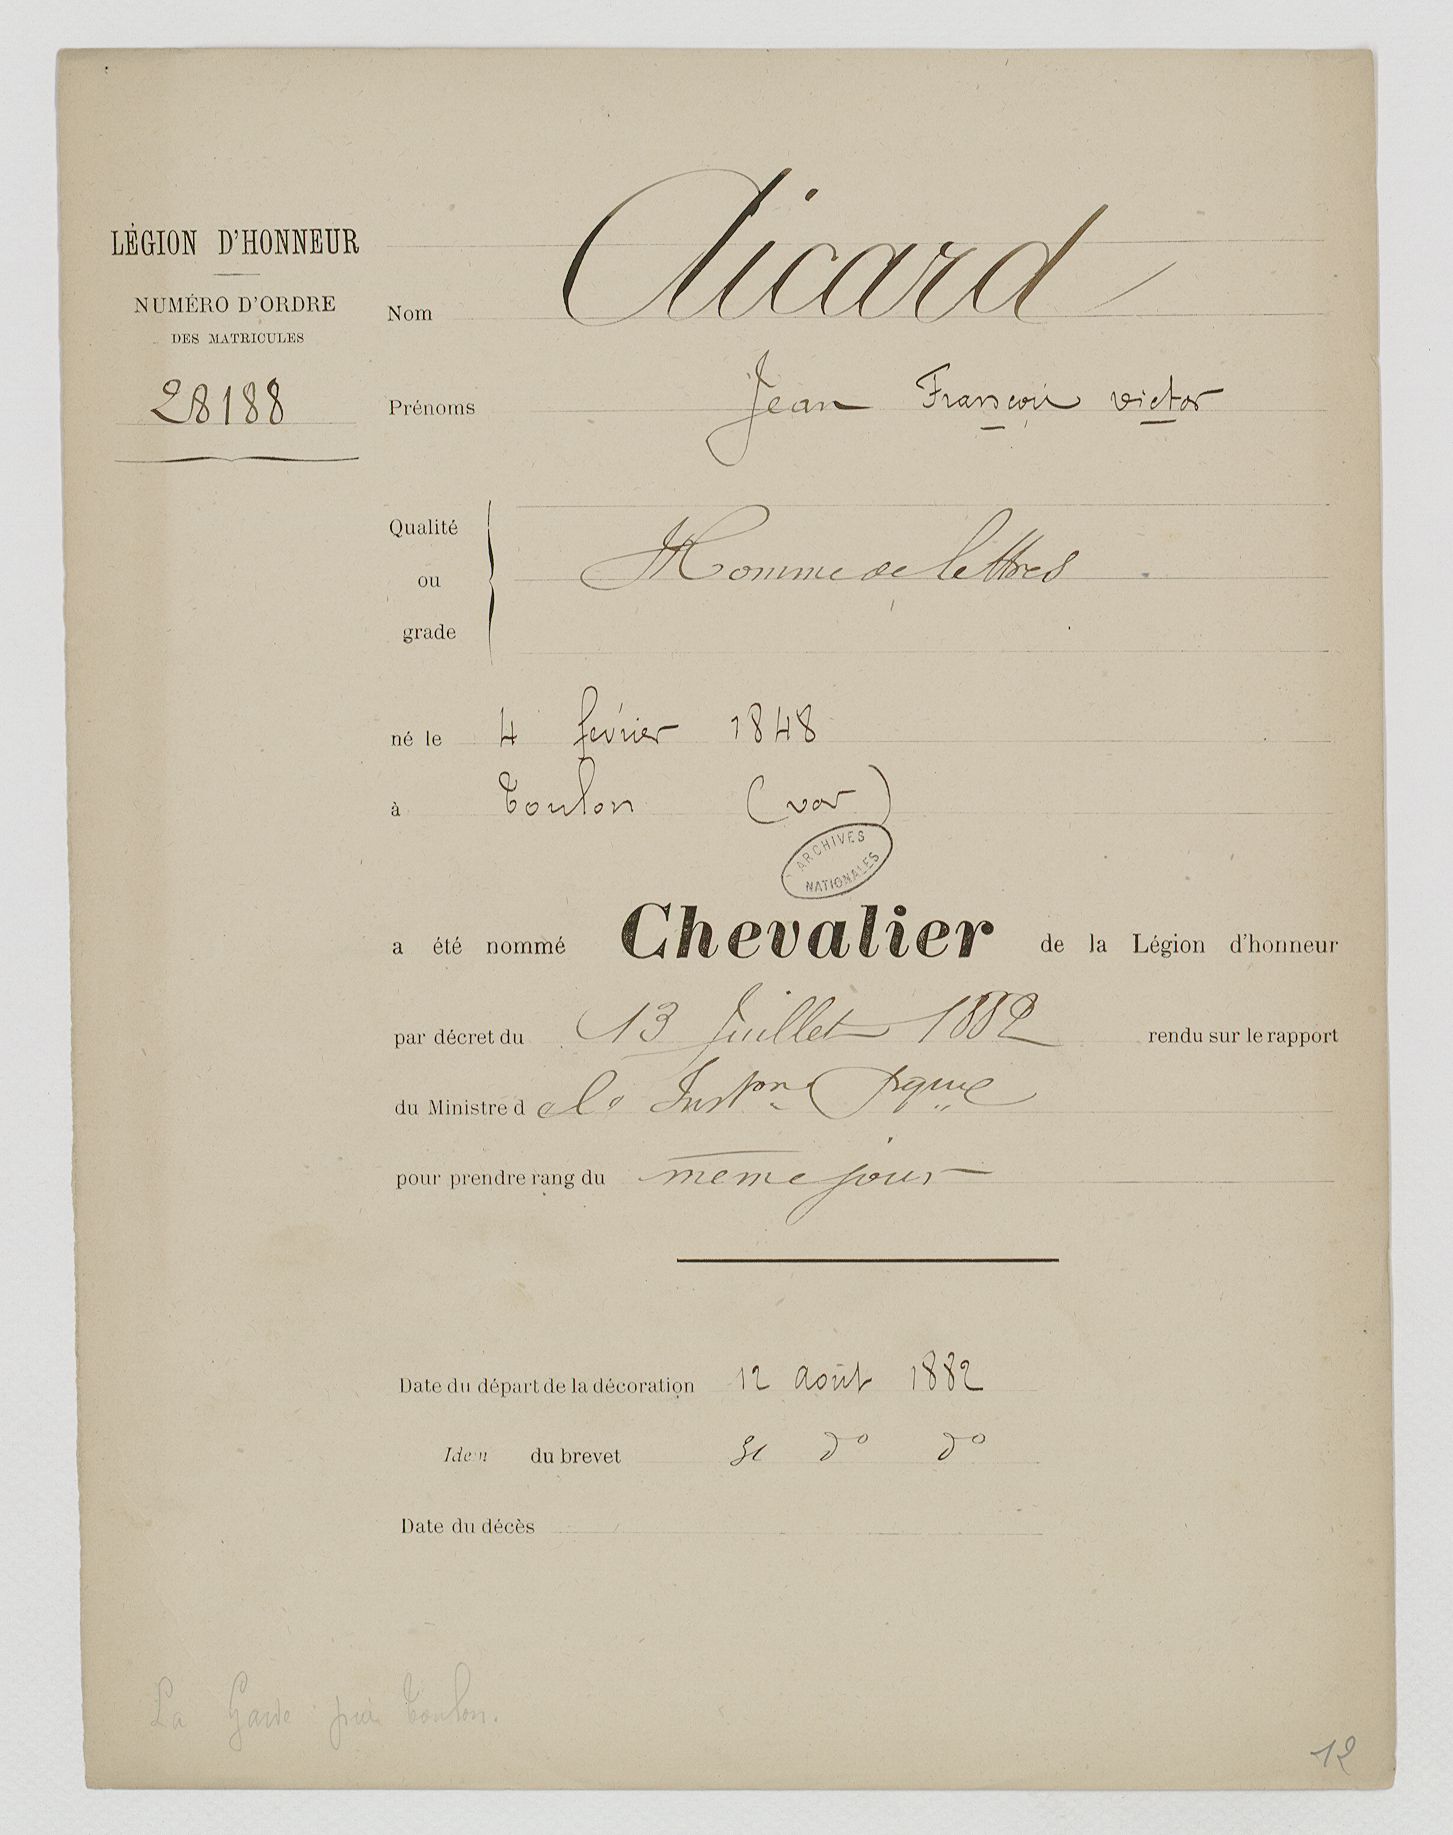 LÉGION D'HONNEUR
NUMÉRO D'ORDRE
DES MATRICULES
28188
Nom Aicard
Prénoms Jean François victor
Qualité
ou
grade
Homme de lettres
né le 4 février 1848
à Toulon (var)
ARCHIVES
NATIONALES
a été nommé Chevalier de la Légion d'honneur
par décret du 13 Juillet 1882 rendu sur le rapport
du Ministre d
pour prendre rang du même jour
Date du départ de la décoration 12 août 1882
Idem du brevet do do
Date du décès
La Garde près Toulon.
12